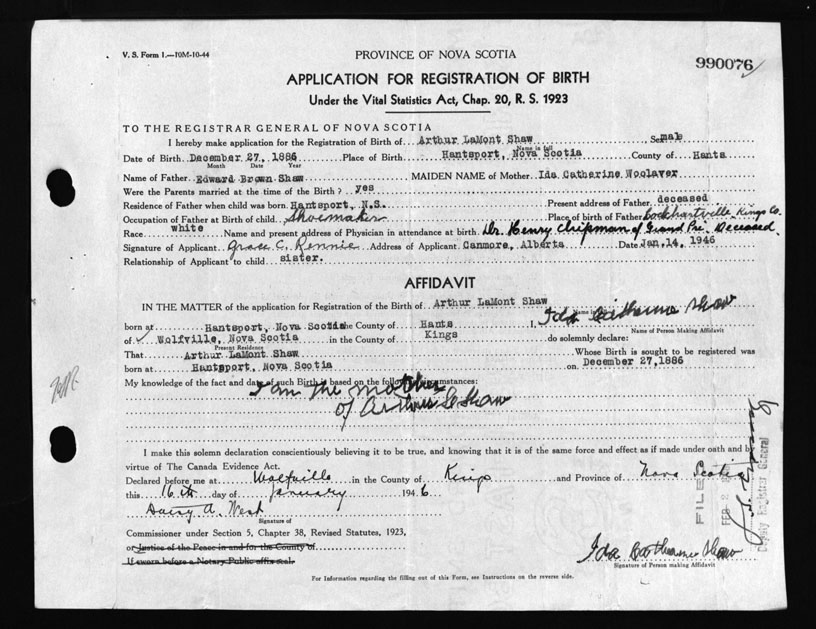 V. S. Form 1.—10M-10-44
PROVINCE OF NOVA SCOTIA
990076
APPLICATION FOR REGISTRATION OF BIRTH
Under the Vital Statistics Act, Chap. 20, R. S. 1923
TO THE REGISTRAR GENERAL OF NOVA SCOTIA
I hereby make application for the Registration of Birth of Arthur LaMont Shaw Sex male
Name in full
Date of Birth December 27, 1886 Place of Birth Hantsport, Nova Scotia County of Hants
Month Date Year
Name of Father Edward Brown Shaw MAIDEN NAME of Mother Ida Catherine Woolaver
Were the Parents married at the time of the Birth? yes
Residence of Father when child was born Hantsport, N.S. Present address of Father deceased
Occupation of Father at Birth of child Shoemaker Place of birth of Father Lockhartville Kings Co.
Race white Name and present address of Physician in attendance at birth Dr. Henry Chipman of Grand Pré. Deceased.
Signature of Applicant Grace C. Rennie Address of Applicant Canmore, Alberta Date Jan. 14, 1946
Relationship of Applicant to child sister.
AFFIDAVIT
IN THE MATTER of the application for Registration of the Birth of Arthur LaMont Shaw
born at Hantsport, Nova Scotia the County of Hants I, Ida Catherine Shaw
Name of Person Making Affidavit
of Wolfville, Nova Scotia in the County of Kings do solemnly declare:
Present Residence
That Arthur LaMont Shaw Whose Birth is sought to be registered was
born at Hantsport, Nova Scotia on December 27, 1886
My knowledge of the fact and date of such Birth is based on the following circumstances:
I am the mother
of Arthur L Shaw
I make this solemn declaration conscientiously believing it to be true, and knowing that it is of the same force and effect as if made under oath and by
virtue of The Canada Evidence Act.
Declared before me at Wolfville in the County of Kings and Province of Nova Scotia
this 16th day of January 1946
A. West
Signature of
Commissioner under Section 5, Chapter 38, Revised Statutes, 1923,
or Justice of the Peace in and for the County of
If sworn before a Notary Public affix seal.
Ida Catherine Shaw
Signature of Person making Affidavit
For Information regarding the filling out of this Form, see Instructions on the reverse side.
FILED
FEB 2
Deputy Registrar General